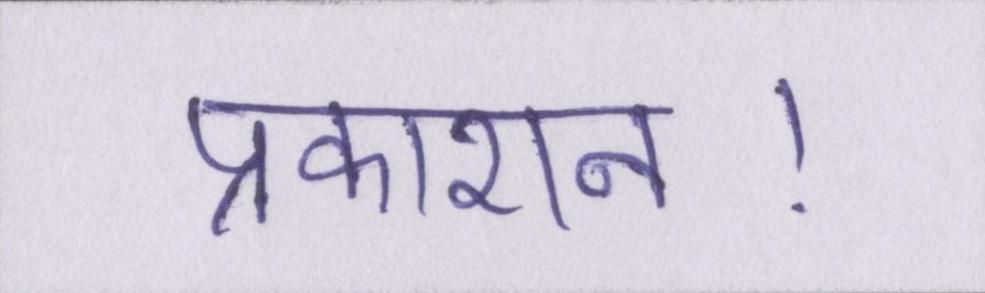 प्रकाशन !